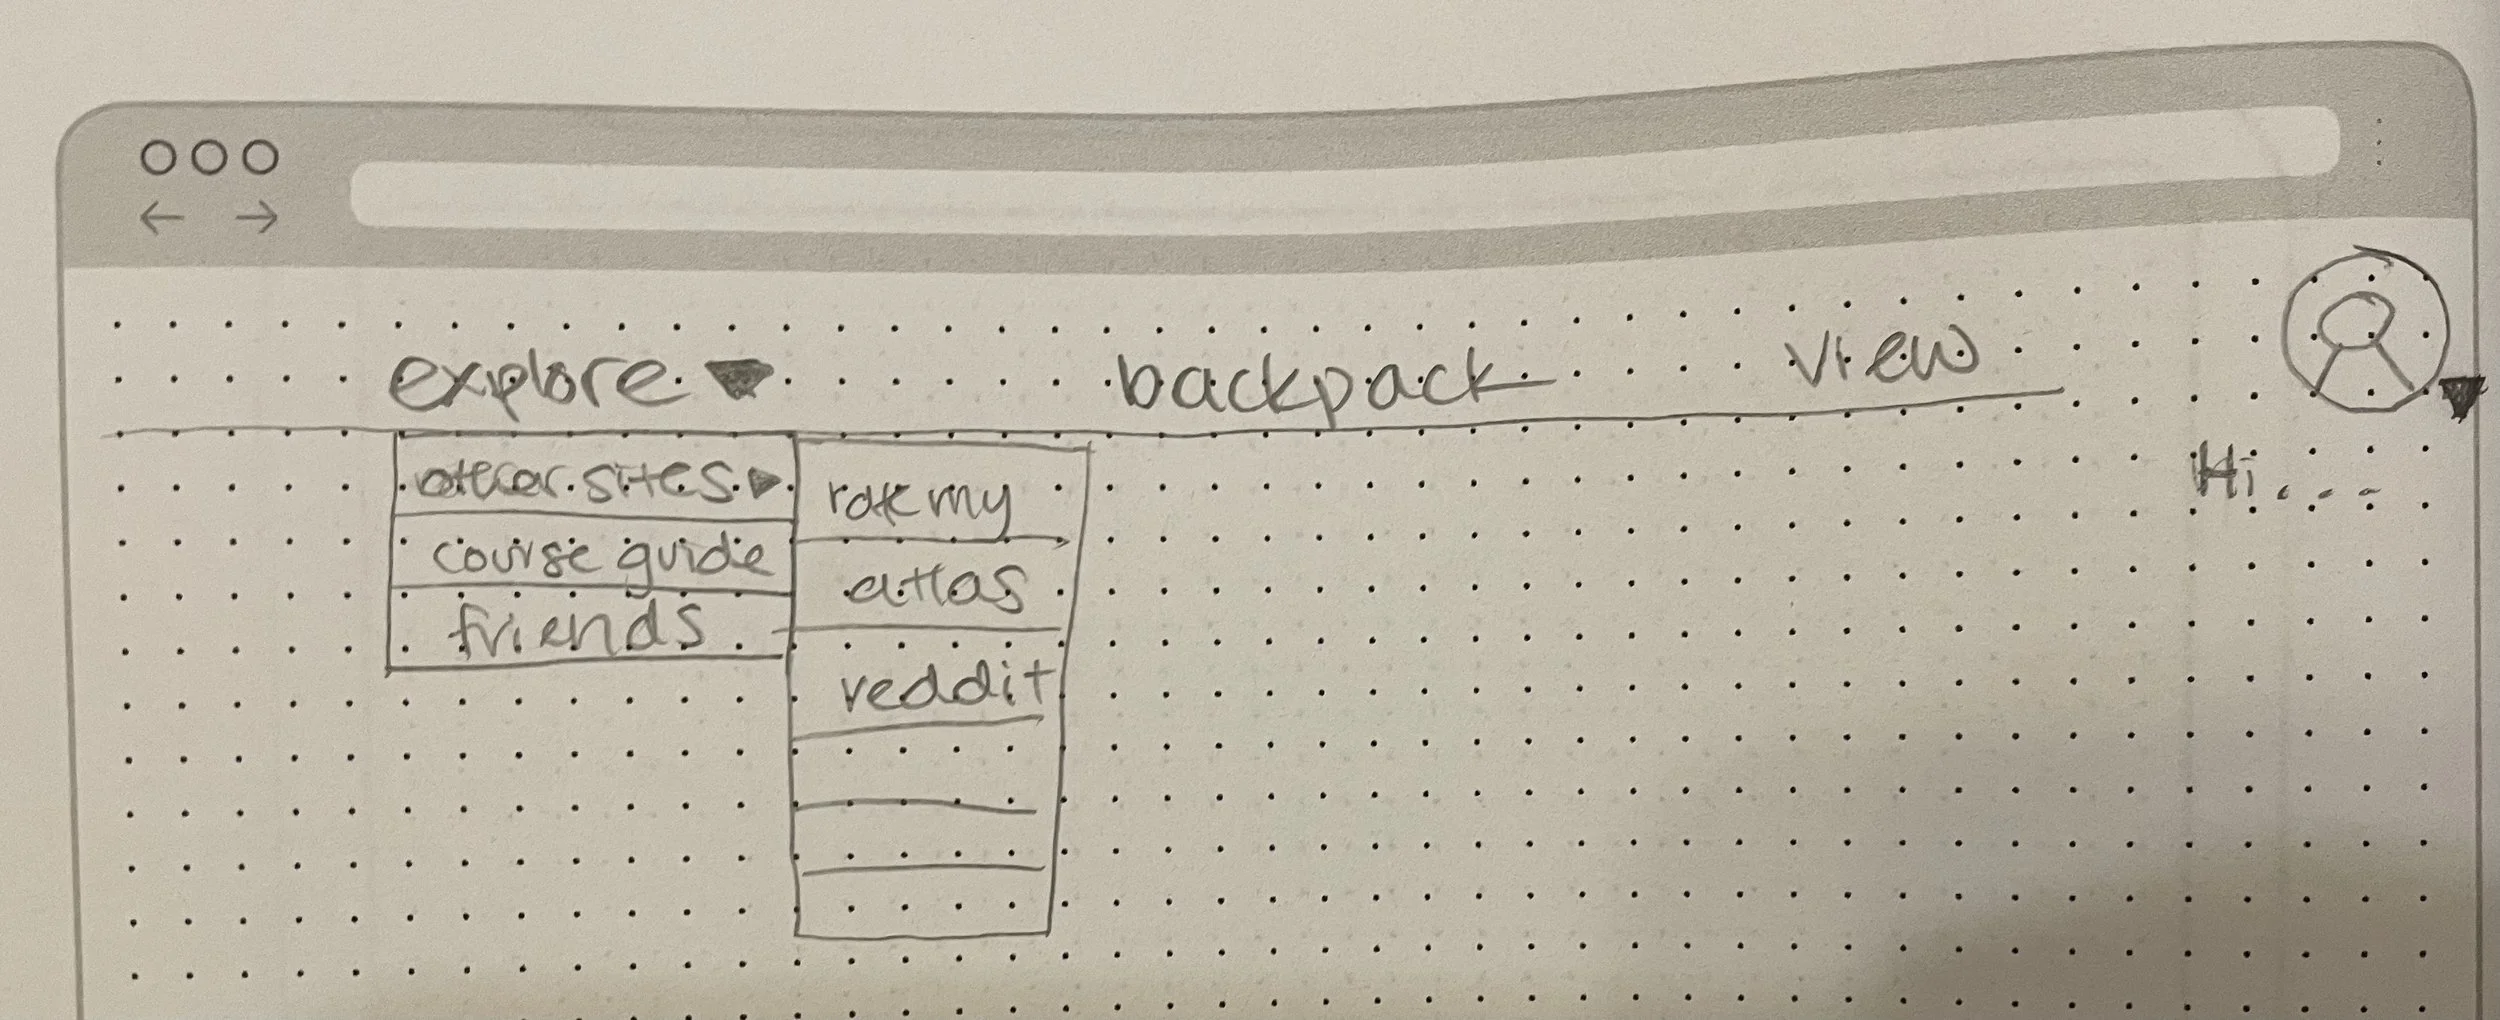 explore backpack view
Hi....
other sites
course guide
friends
rate my
atlas
reddit